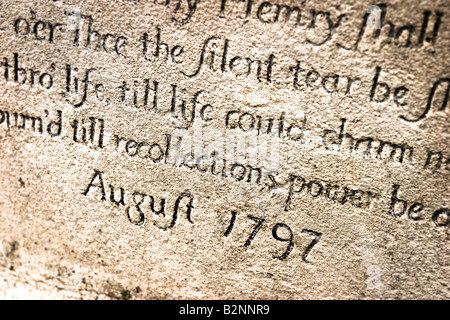 Mem'ry ſhall
o'er Thee the ſilent tear be
thro' life, till life could charm
till recollections power be
Auguſt 1797
alamy
B2NNR9
www.alamy.com